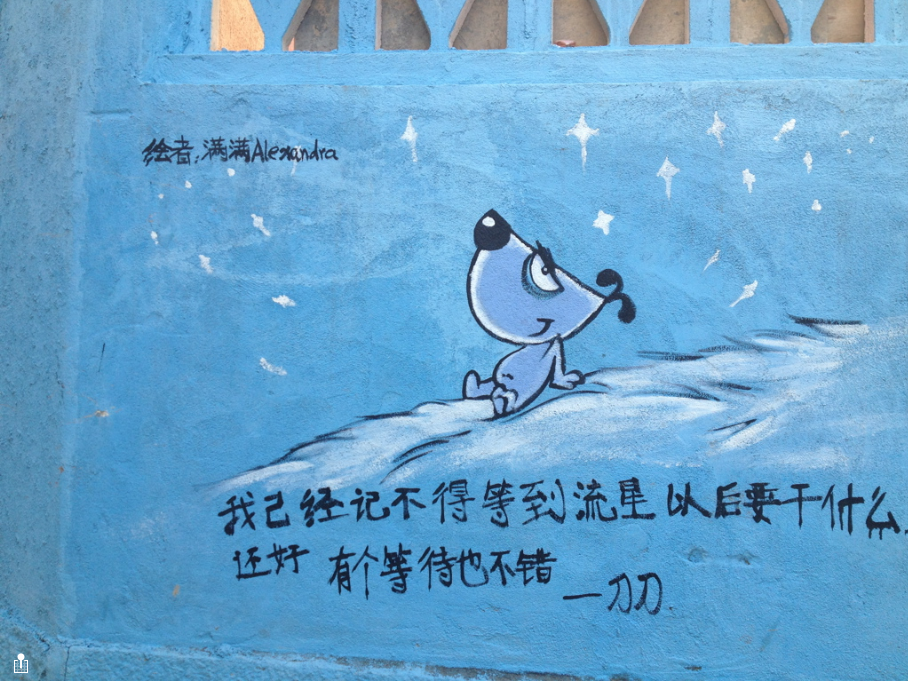 绘者:满满Alexandra
我已经记不得等到流星以后要干什么
还好 有个等待也不错
—刀刀